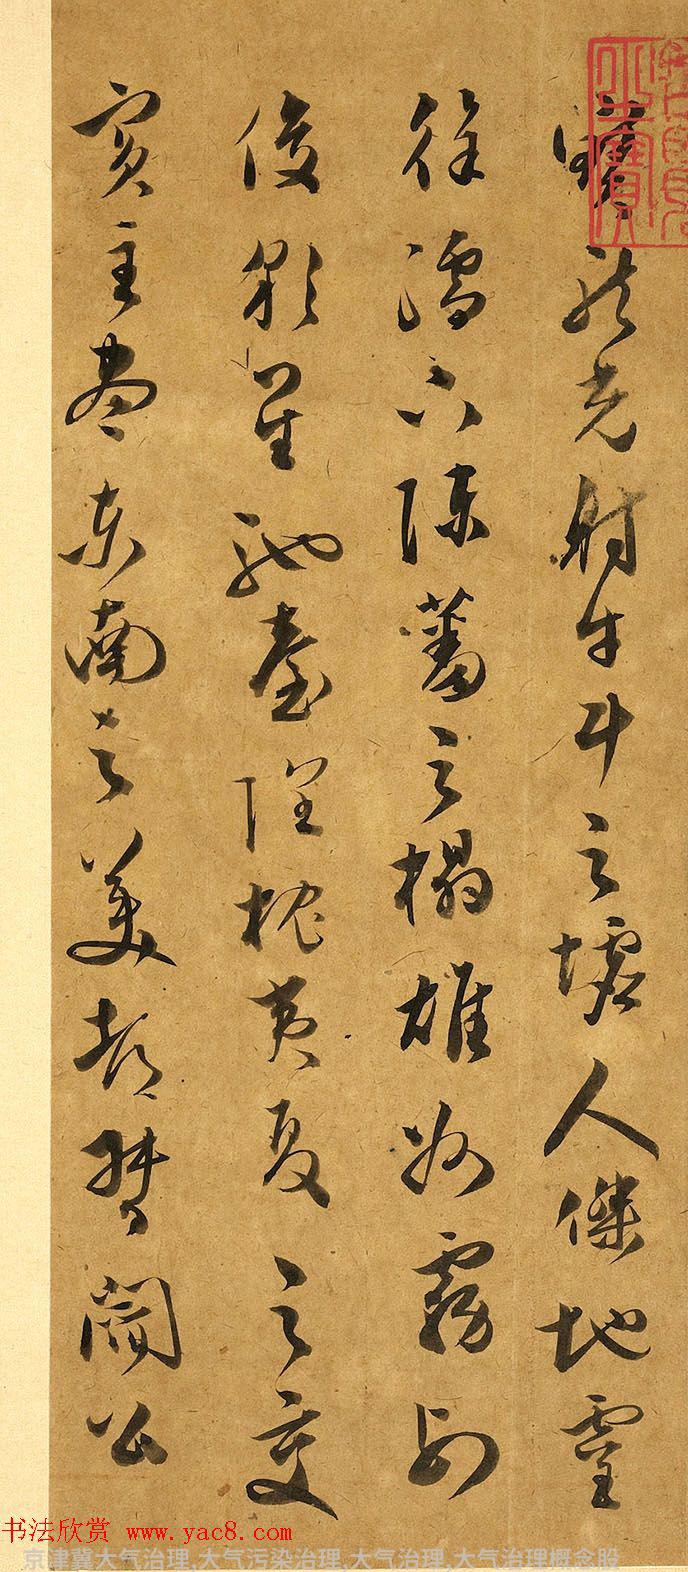 寶龍光射牛斗之墟人傑地靈
徐濡下陳蕃之榻雄州霧列
俊彩星馳臺隍枕夷夏之交
賓主盡東南之美都督閻公
书法欣赏 www.yac8.com
京津冀大气治理,大气污染治理,大气治理,大气治理概念股